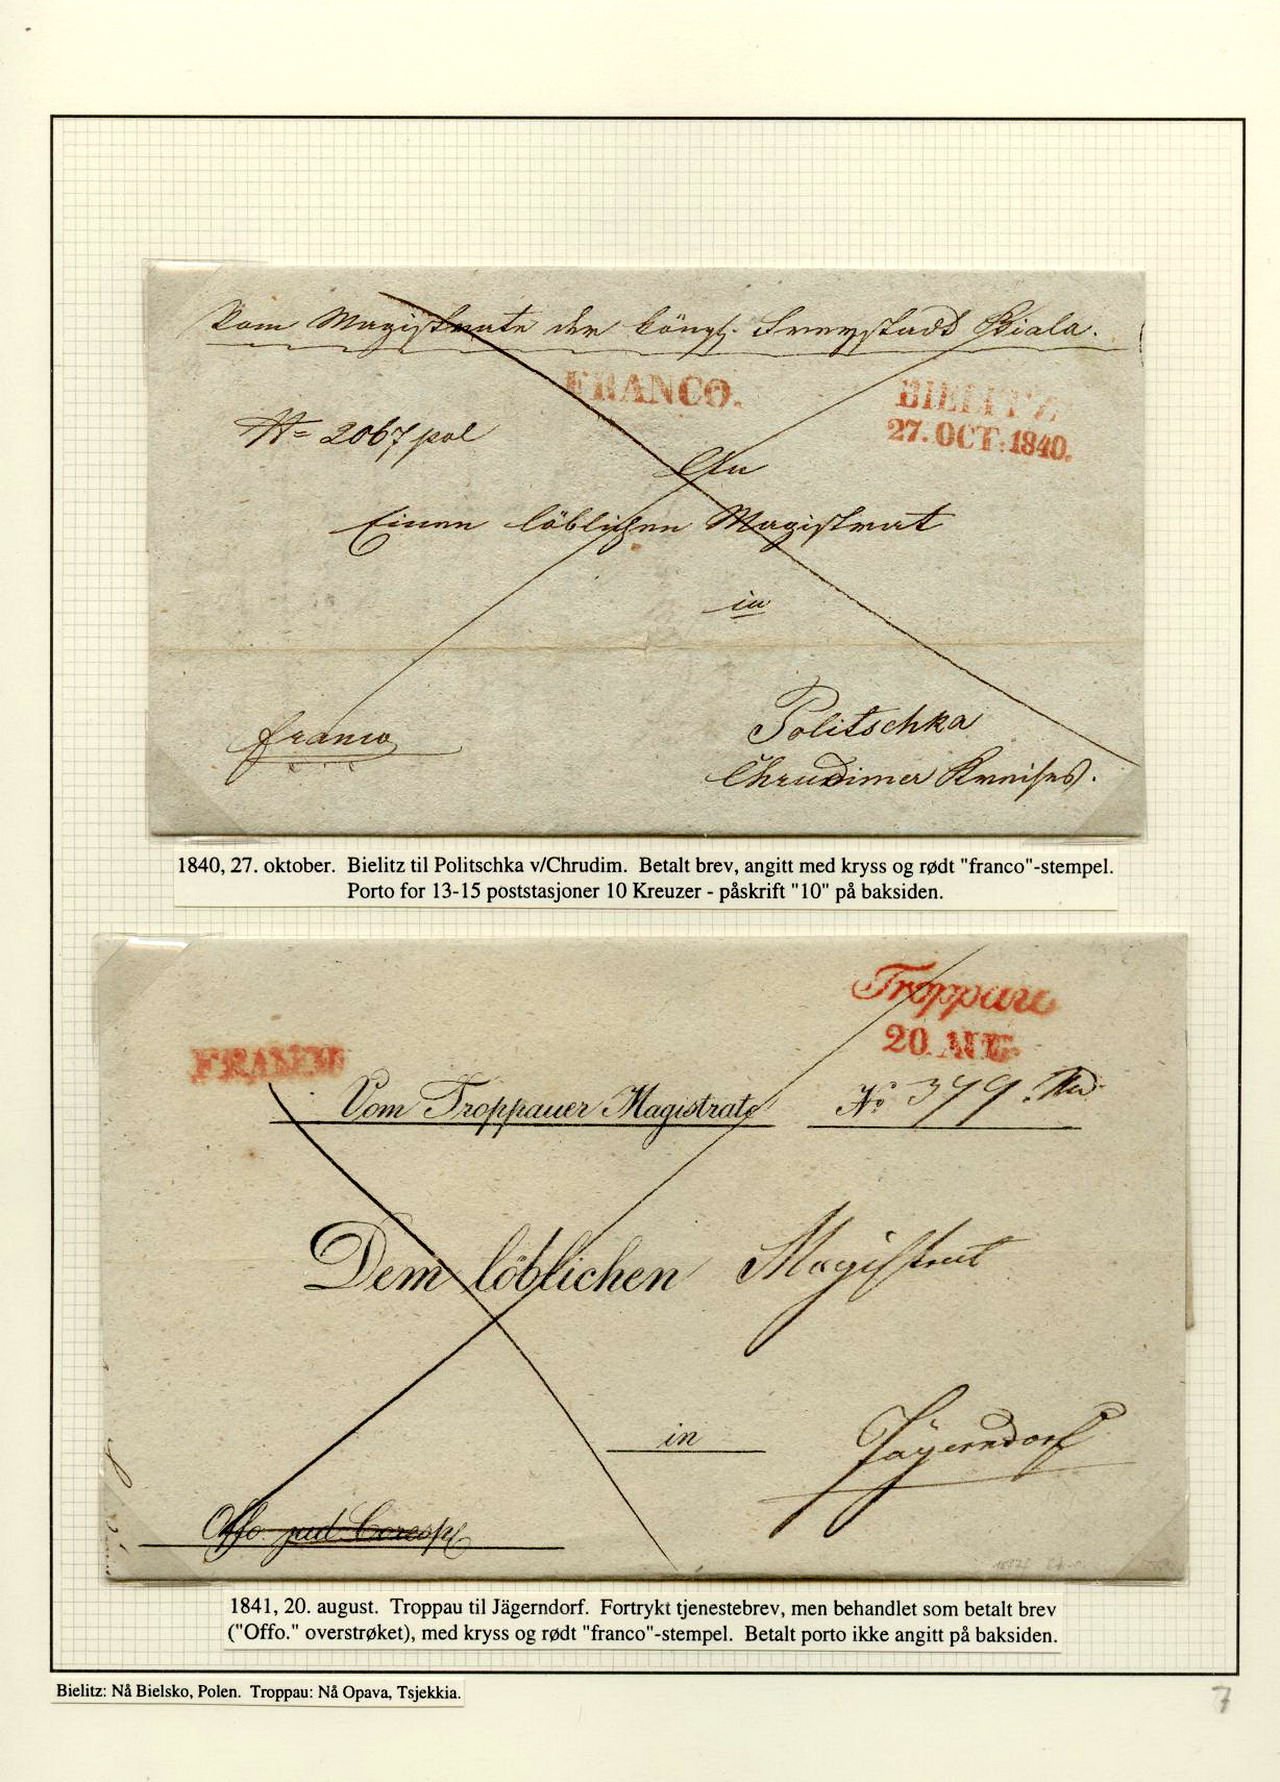 Vom Magistrate der königl. Freystadt Biala.
FRANCO.
BIELITZ
27. OCT. 1840.
N= 2067 pol
An
Einen löblichen Magistrat
in
franco
Politschka
Chrudimer Kreises.
1840, 27. oktober. Bielitz til Politschka v/Chrudim. Betalt brev, angitt med kryss og rødt "franco"-stempel.
Porto for 13-15 poststasjoner 10 Kreuzer - påskrift "10" på baksiden.
Troppau
20. AUG.
FRANCO
Vom Troppauer Magistrate No 379.
Dem löblichen Magistrat
in Jägerndorf
Offo. jud. Coresp
1841, 20. august. Troppau til Jägerndorf. Fortrykt tjenestebrev, men behandlet som betalt brev
("Offo." overstrøket), med kryss og rødt "franco"-stempel. Betalt porto ikke angitt på baksiden.
Bielitz: Nå Bielsko, Polen. Troppau: Nå Opava, Tsjekkia.
7